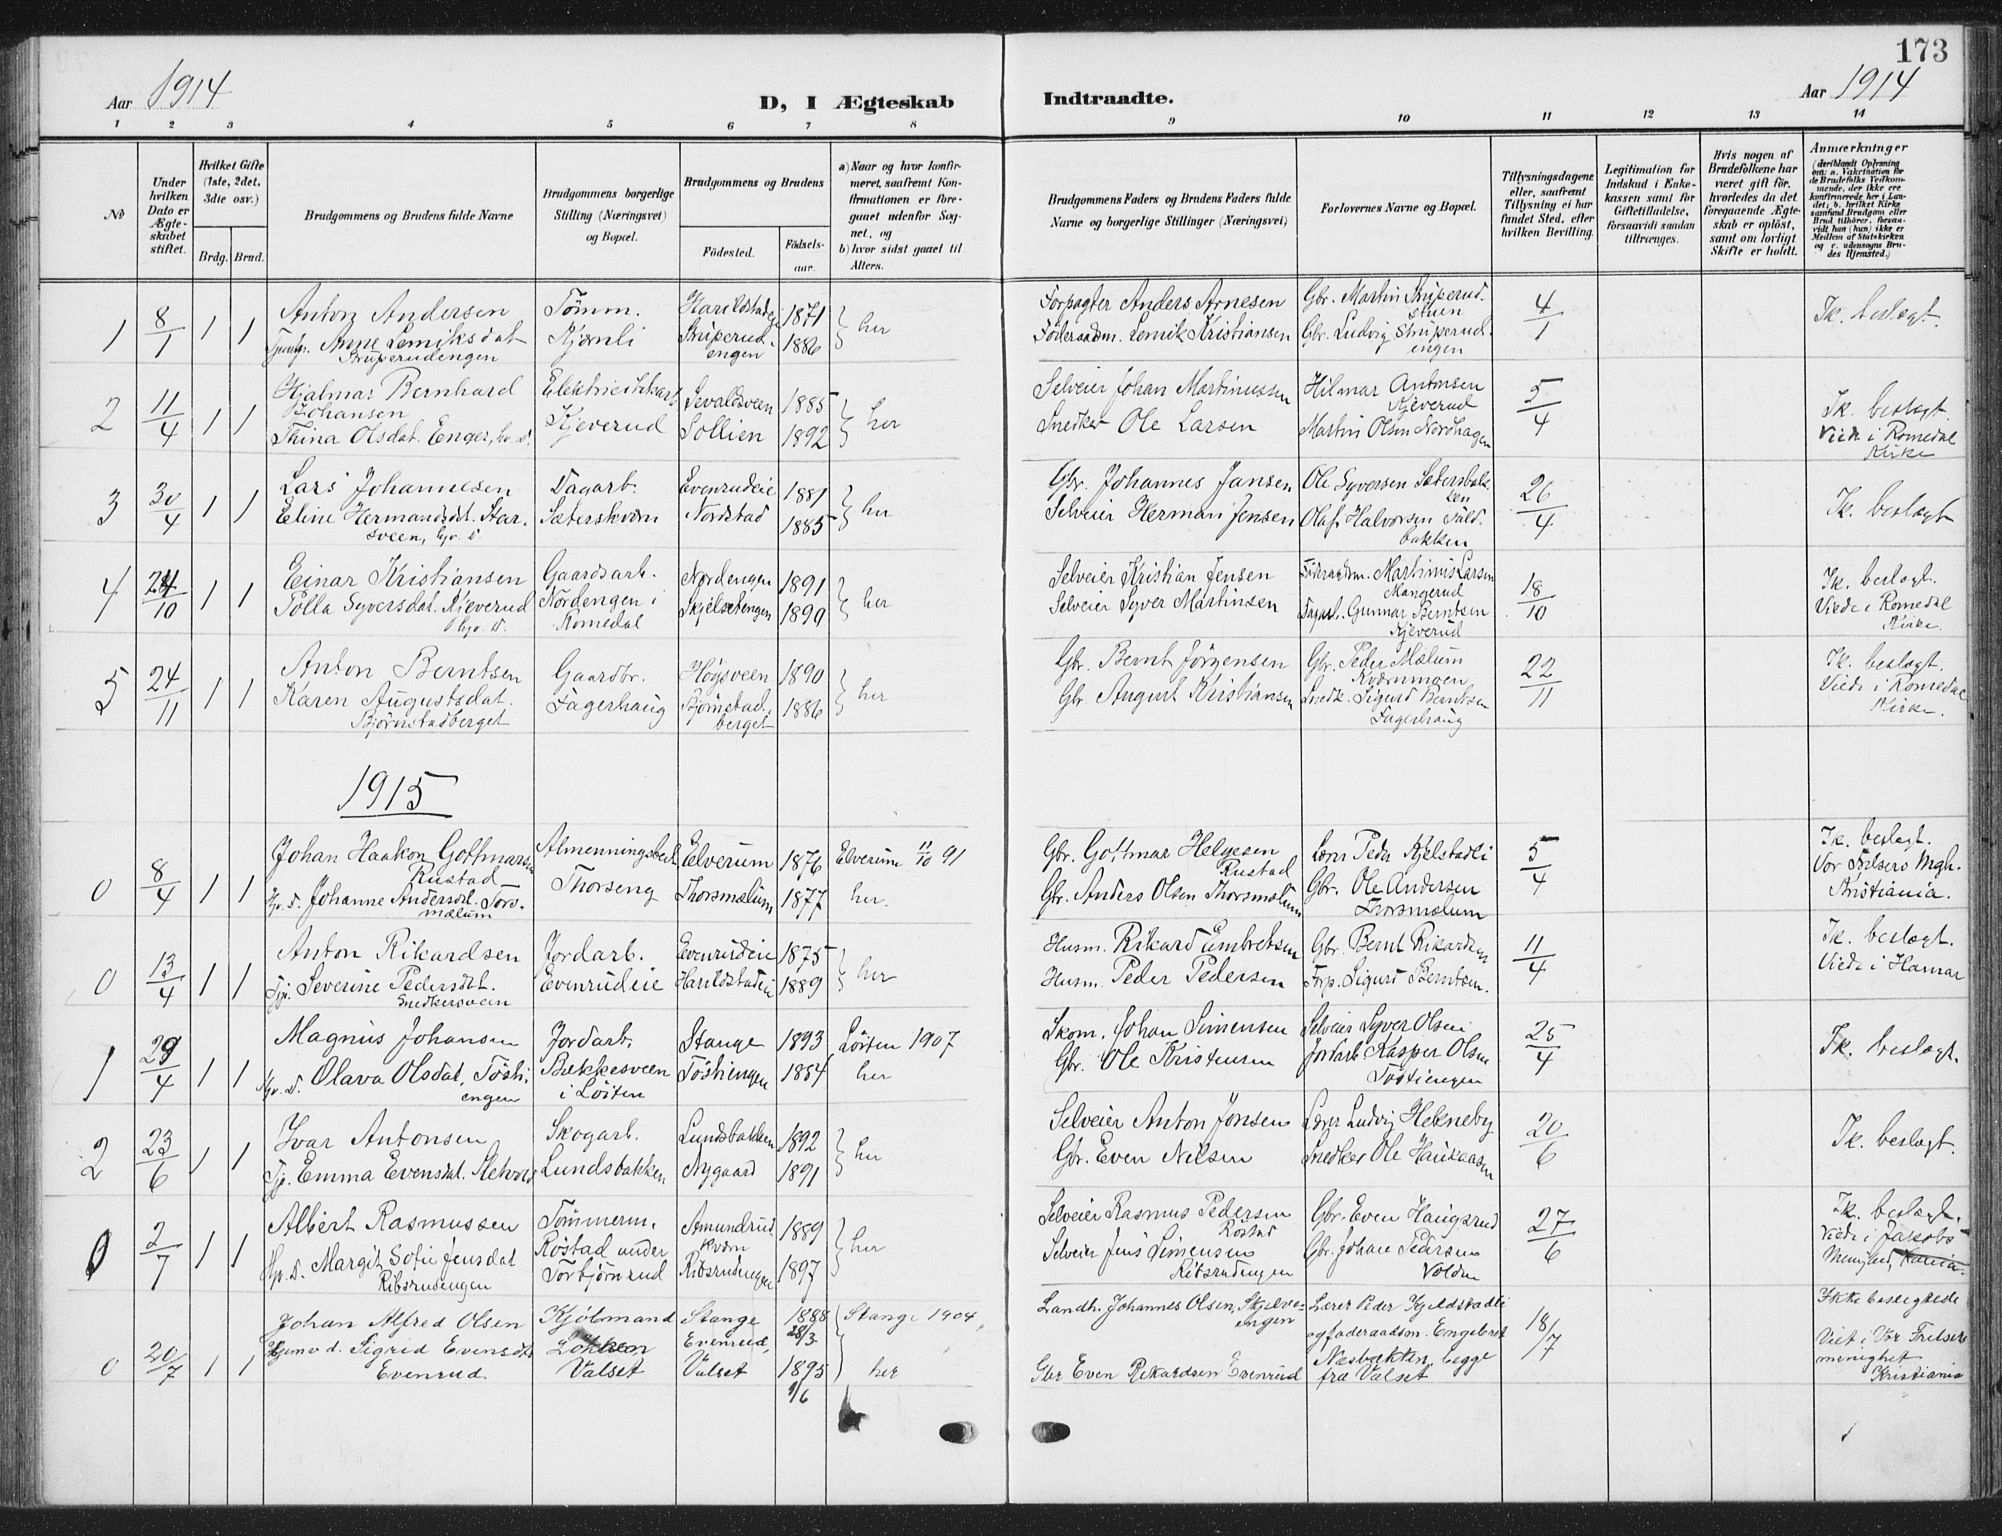 173
Aar 1914
D, I Ægteskab
Indtraadte.
Aar 1914
1 2 3 4 5 6 7 8 9 10 11 12 13 14
No
Under hvilken Dato er Ægteskabet stiftet.
Hvilket Gifte (1ste, 2det, 3die osv.)
Brdg. Brud.
Brudgommens og Brudens fulde Navne
Brudgommens borgerlige Stilling (Næringsvei) og Bopæl.
Brudgommens og Brudens
Fødested.
Fødselsaar.
a) Naar og hvor konfirmeret, saafremt Konfirmationen er foregaaet udenfor Sognet, og
b) hvor sidst gaaet til Alters.
Brudgommens Faders og Brudens Faders fulde Navne og borgerlige Stillinger (Næringsvei)
Forlovernes Navne og Bopæl.
Tillysningsdagene eller, saafremt Tillysning ei har fundet Sted, efter hvilken Bevilling.
Legitimation for Indskud i Enkekassen samt for Giftetilladelse, forsaavidt saadan tiltrænges.
Hvis nogen af Brudefolkene har været gift før, hvorledes da det foregaaende Ægteskab er opløst, samt om lovligt Skifte er holdt.
Anmærkninger
(deriblandt Oplysning om: a. Vakcination for de Brudefolks Vedkommende, der ikke ere konfirmerede her i Landet; b. hvilket Kirkesamfund Brudgom eller Brud tilhører, forsaavidt han (hun) ikke er Medlem af Statskirken og c. udensogns Brudes Hjemsted.)
1 8/1 1 1 Anton Andersen Tømm. Harildstadeie 1871 her Forpagter Anders Arnesen Gbr. Martin Struperudstuen 4/1 Ik. beslegt.
Anne Lemiksdat Struperudengen Kjernli Struperudengen 1886 Føderaadsm. Lemik Kristiansen Gbr. Ludvig Struperudengen
2 11/4 1 1 Hjalmar Bernhard Johansen Elektricitetsarb. Sevaldsveen 1885 her Selveier Johan Martinussen Hilmar Antonsen Kjeverud 5/4 Ik. beslegt.
Thina Olsdat. Enger, hv. d. Kjeverud Sollien 1892 Snedker Ole Larsen Martin Olsen Nordhagen Viede i Romedal Kirke
3 30/4 1 1 Lars Johannesen Dagarb. Evenrudeie 1881 her Gbr. Johannes Jansen Ole Syversen Sætersbakken 26/4 Ik. beslegt
Eline Hermandsdt. Starsveen, hv. d. Sæterskvern Nordstad 1885 Selveier Herman Jensen Olaf Halvorsen Juldbakken
4 24/10 1 1 Einar Kristiansen Gaardsarb. Nordengen 1891 her Selveier Kristian Jensen Føderaadsm. Martinus Larsen Mangerud 18/10 Ik. beslegt.
Polla Syversdat. Kjeverud hv. d. Nordengen i Romedal Skjelsetengen 1890 Selveier Syver Martinsen Gunnar Berntsen Kjeverud Viede i Romedal Kirke.
5 24/11 1 1 Anton Berntsen Gaardbr. Høysveen 1890 her Gbr. Bernt Jørgensen Gbr. Peder Mælum Kværnmoen 22/11 Ik. beslegt.
Karen Augustsdat. Bjørnstadberget Fagerhaug Bjørnstadberget 1886 Gbr. August Kristiansen Snedk. Sigurd Berntsen Fagerhaug Viede i Romedal Kirke.
1915
0 8/4 1 1 Johan Haakon Gottmarsen Rustad Almenningsbest. Elverum 1876 Elverum 11/10 91 Gbr. Gottmar Helgesen Rustad Lærer Peder Kjelstadli 5/4 Ik. beslegt.
Hv. d. Johanne Andersdt. Torsmælum Thorseng Thorsmælum 1877 her. Gbr. Anders Olsen Thorsmælum Gbr. Ole Andersen Thorsmælum Vor Frelsers Mgh. Kristiania.
0 13/4 1 1 Anton Rikardsen Jordarb. Evenrudeie 1875 her Husm. Rikard Embretsen Gbr. Bernt Rikardsen 11/4 Ik. beslegt.
Tjp. Severine Pedersdt. Snedkersveen Evenrudeie Harildstadeie 1889 Husm. Peder Pedersen Forp. Sigurd Berntsen. Viede i Hamar
1 29/4 1 1 Magnus Johansen Jordarb. Stange 1893 Løiten 1907 Skom. Johan Simensen Selveier Syver Olsen 25/4 Ik. beslegt.
Hv. d. Olava Olsdat, Tøstiengen Bækkesveen i Løiten Tøstiengen 1884 her Gbr. Ole Kristensen Jordarb Kasper Olsen Tøstiengen
2 23/6 1 1 Ivar Antonsen Skogarb. Lundsbakken 1892 her Selveier Anton Jonsen Lærer Ludvig Helkneby 20/6 Ik. beslegt.
Tjp. Emma Evensdat. Lundsbakken Nygaard 1891 Gbr. Even Nilsen Snedker Ole Haukaasen
0 2/7 1 1 Albert Rasmussen Tømmerm. Amundrud kvern 1889 her Selveier Rasmus Pedersen Røstad Gbr. Even Haugsrud 27/6 Ik. beslegt.
Hv. d. Margit Sofie Jensdat Ribsrudengen Røstad under Torbjørnrud Ribsrudengen 1897 Selveier Jens Simensen Ribsrudengen Gbr. Johan Pedersen Volden Viede i Jakobs Menighed, Kania.
0 20/7 1 1 Johan Alfred Olsen Kjøbmand Stange 1888 28/3 Stange 1904, Landh. Johannes Olsen, Lærer Peder Kjeldstadli 18/7 Ikke beslegtede
Hjemv d. Sigrid Evensdt. Evenrud. Løkken Valset Evenrud, Valset 1895 1/6 her Gbr Even Rikardsen Evenrud og føderaadsm. Engebret Næsbakken, begge fra Valset Viet i Vor Frelsers menighet Kristiania